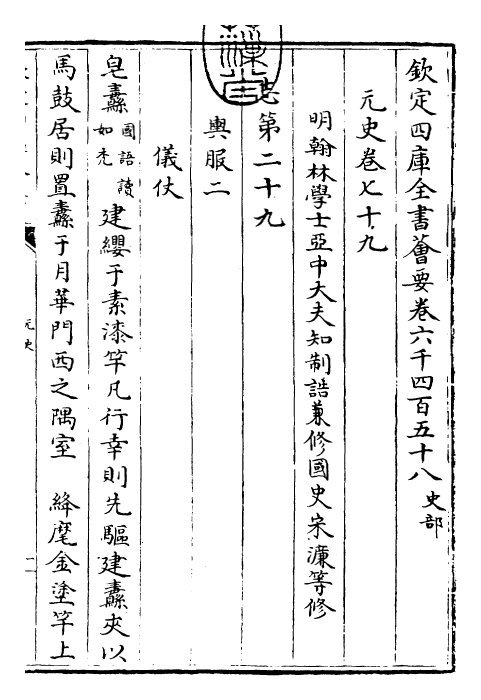 欽定四庫全書薈要卷六千四百五十八 史部
元史卷七十九
明翰林學士亞中大夫知制誥兼修國史宋濂等修
志第二十九
輿服二
儀仗
皂纛國語讀如禿建纓于素漆竿凡行幸則先驅建纛夾以
馬鼓居則置纛于月華門西之隅室 絳麾金塗竿上
元史